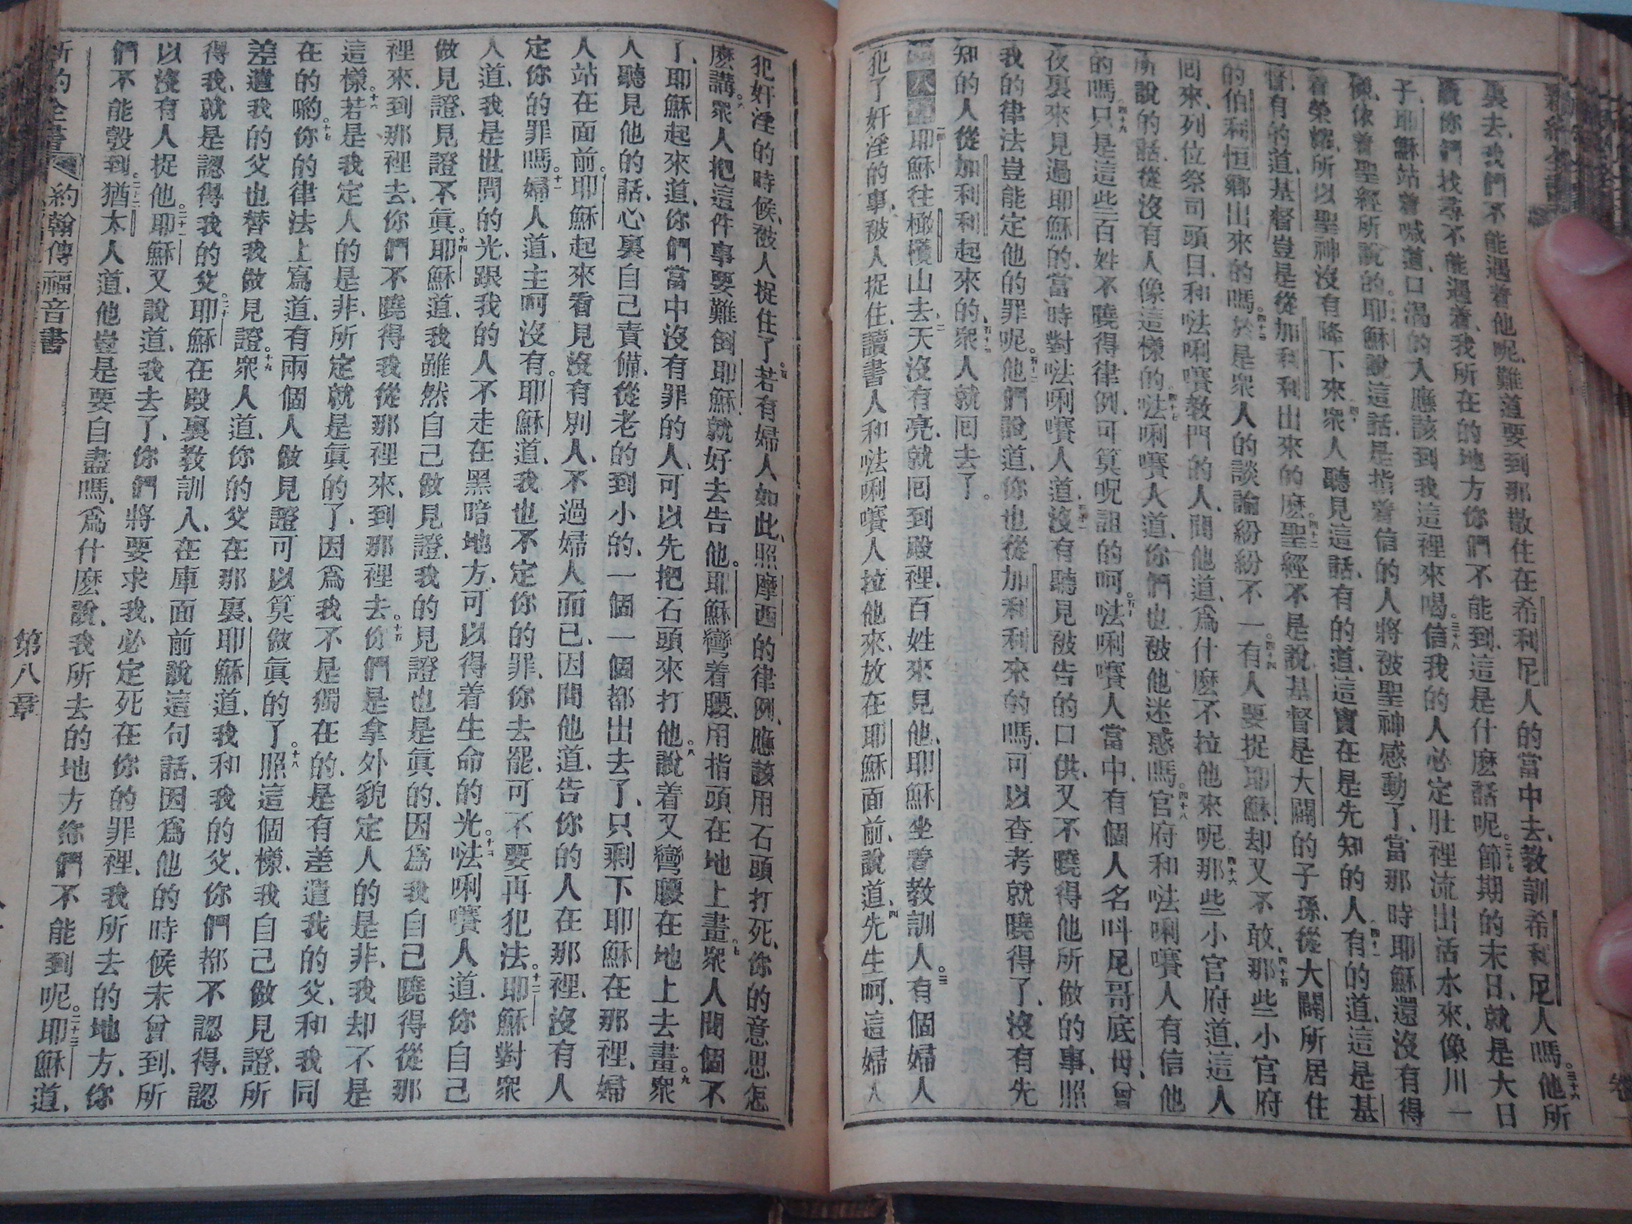 裏去、我們不能遇着他呢、難道要到那散住在希利尼人的當中去、教訓希利尼人嗎。三十六他所
說你們找尋不能遇着、我所在的地方你們不能到、這是什麼話呢。三十七節期的末日、就是大日
子、耶穌站着喊道、口渴的人應該到我這裡來喝。三十八信我的人必定肚裡流出活水來、像川一
樣、依着聖經所說的。三十九耶穌說這話、是指着信的人將被聖神感動了、當那時耶穌還沒有得
着榮耀、所以聖神沒有降下來。四十衆人聽見這話、有的道、這實在是先知的人。四十一有的道、這是基
督、有的道、基督豈是從加利利出來的麽。四十二聖經不是說基督是大闢的子孫、從大闢所居住
的伯利恒鄉出來的嗎。四十三於是衆人的談論紛紛不一。四十四有人要捉耶穌、却又不敢。四十五那些小官府
回來、列位祭司頭目和𠵽唎賽教門的人、問他道、爲什麽不拉他來呢。四十六那些小官府道、這人
所說的話、從沒有人像這樣的。四十七𠵽唎賽人道、你們也被他迷惑嗎。四十八官府和𠵽唎賽人有信他
的嗎。四十九只是這些百姓不曉得律例、可算呪詛的呵。五十𠵽唎賽人當中、有個人名呌尼哥底母、曾
夜裏來見過耶穌的、當時對𠵽唎賽人道。五十一沒有聽見被告的口供、又不曉得他所做的事、照
我的律法豈能定他的罪呢。五十二他們說道、你也從加利利來的嗎、可以查考就曉得了、沒有先
知的人從加利利起來的。五十三衆人就回去了。
第八章 一耶穌往橄欖山去、二天沒有亮就回到殿裡、百姓來見他、耶穌坐着教訓人。三有個婦人
犯了奸淫的事、被人捉住、讀書人和𠵽唎賽人拉他來、放在耶穌面前、說道、四先生呵、這婦人
犯奸淫的時候、被人捉住了。五若有婦人如此、照摩西的律例、應該用石頭打死、你的意思怎
麽講。六衆人把這件事要難倒耶穌、就好去告他、耶穌彎着腰、用指頭在地上畫。七衆人問個不
了、耶穌起來道、你們當中沒有罪的人、可以先把石頭來打他。八說着又彎腰在地上去畫。九衆
人聽見他的話、心裏自己責備、從老的到小的、一個一個都出去了、只剩下耶穌在那裡、婦
人站在面前。十耶穌起來看見沒有別人、不過婦人而已、因問他道、告你的人在那裡、沒有人
定你的罪嗎。十一婦人道、主呵沒有、耶穌道、我也不定你的罪、你去罷、可不要再犯法。十二耶穌對衆
人道、我是世間的光、跟我的人不走在黑暗地方、可以得着生命的光。十三𠵽唎賽人道、你自己
做見證、見證不眞。十四耶穌道、我雖然自己做見證、我的見證也是眞的、因爲我自己曉得從那
裡來、到那裡去、你們不曉得我從那裡來、到那裡去。十五你們是拿外貌定人的是非、我却不是
這樣。十六若是我定人的是非、所定就是眞的了、因爲我不是獨在的、是有差遣我的父和我同
在的喲。十七你們的律法上寫道、有兩個人做見證、可以算做眞的了。十八照這個樣、我自己做見證、所
差遣我的父也替我做見證。十九衆人道、你的父在那裏、耶穌道、我和我的父、你們都不認得、認
得我、就是認得我的父。二十耶穌在殿裏教訓人、在庫面前說這句話、因爲他的時候未曾到、所
以沒有人捉他。二十一耶穌又說道、我去了、你們將要求我、必定死在你的罪裡、我所去的地方、你
們不能彀到。二十二猶太人道、他豈是要自盡嗎、爲什麽說我所去的地方你們不能到呢。二十三耶穌道、
新約全書 約翰傳福音書 第八章